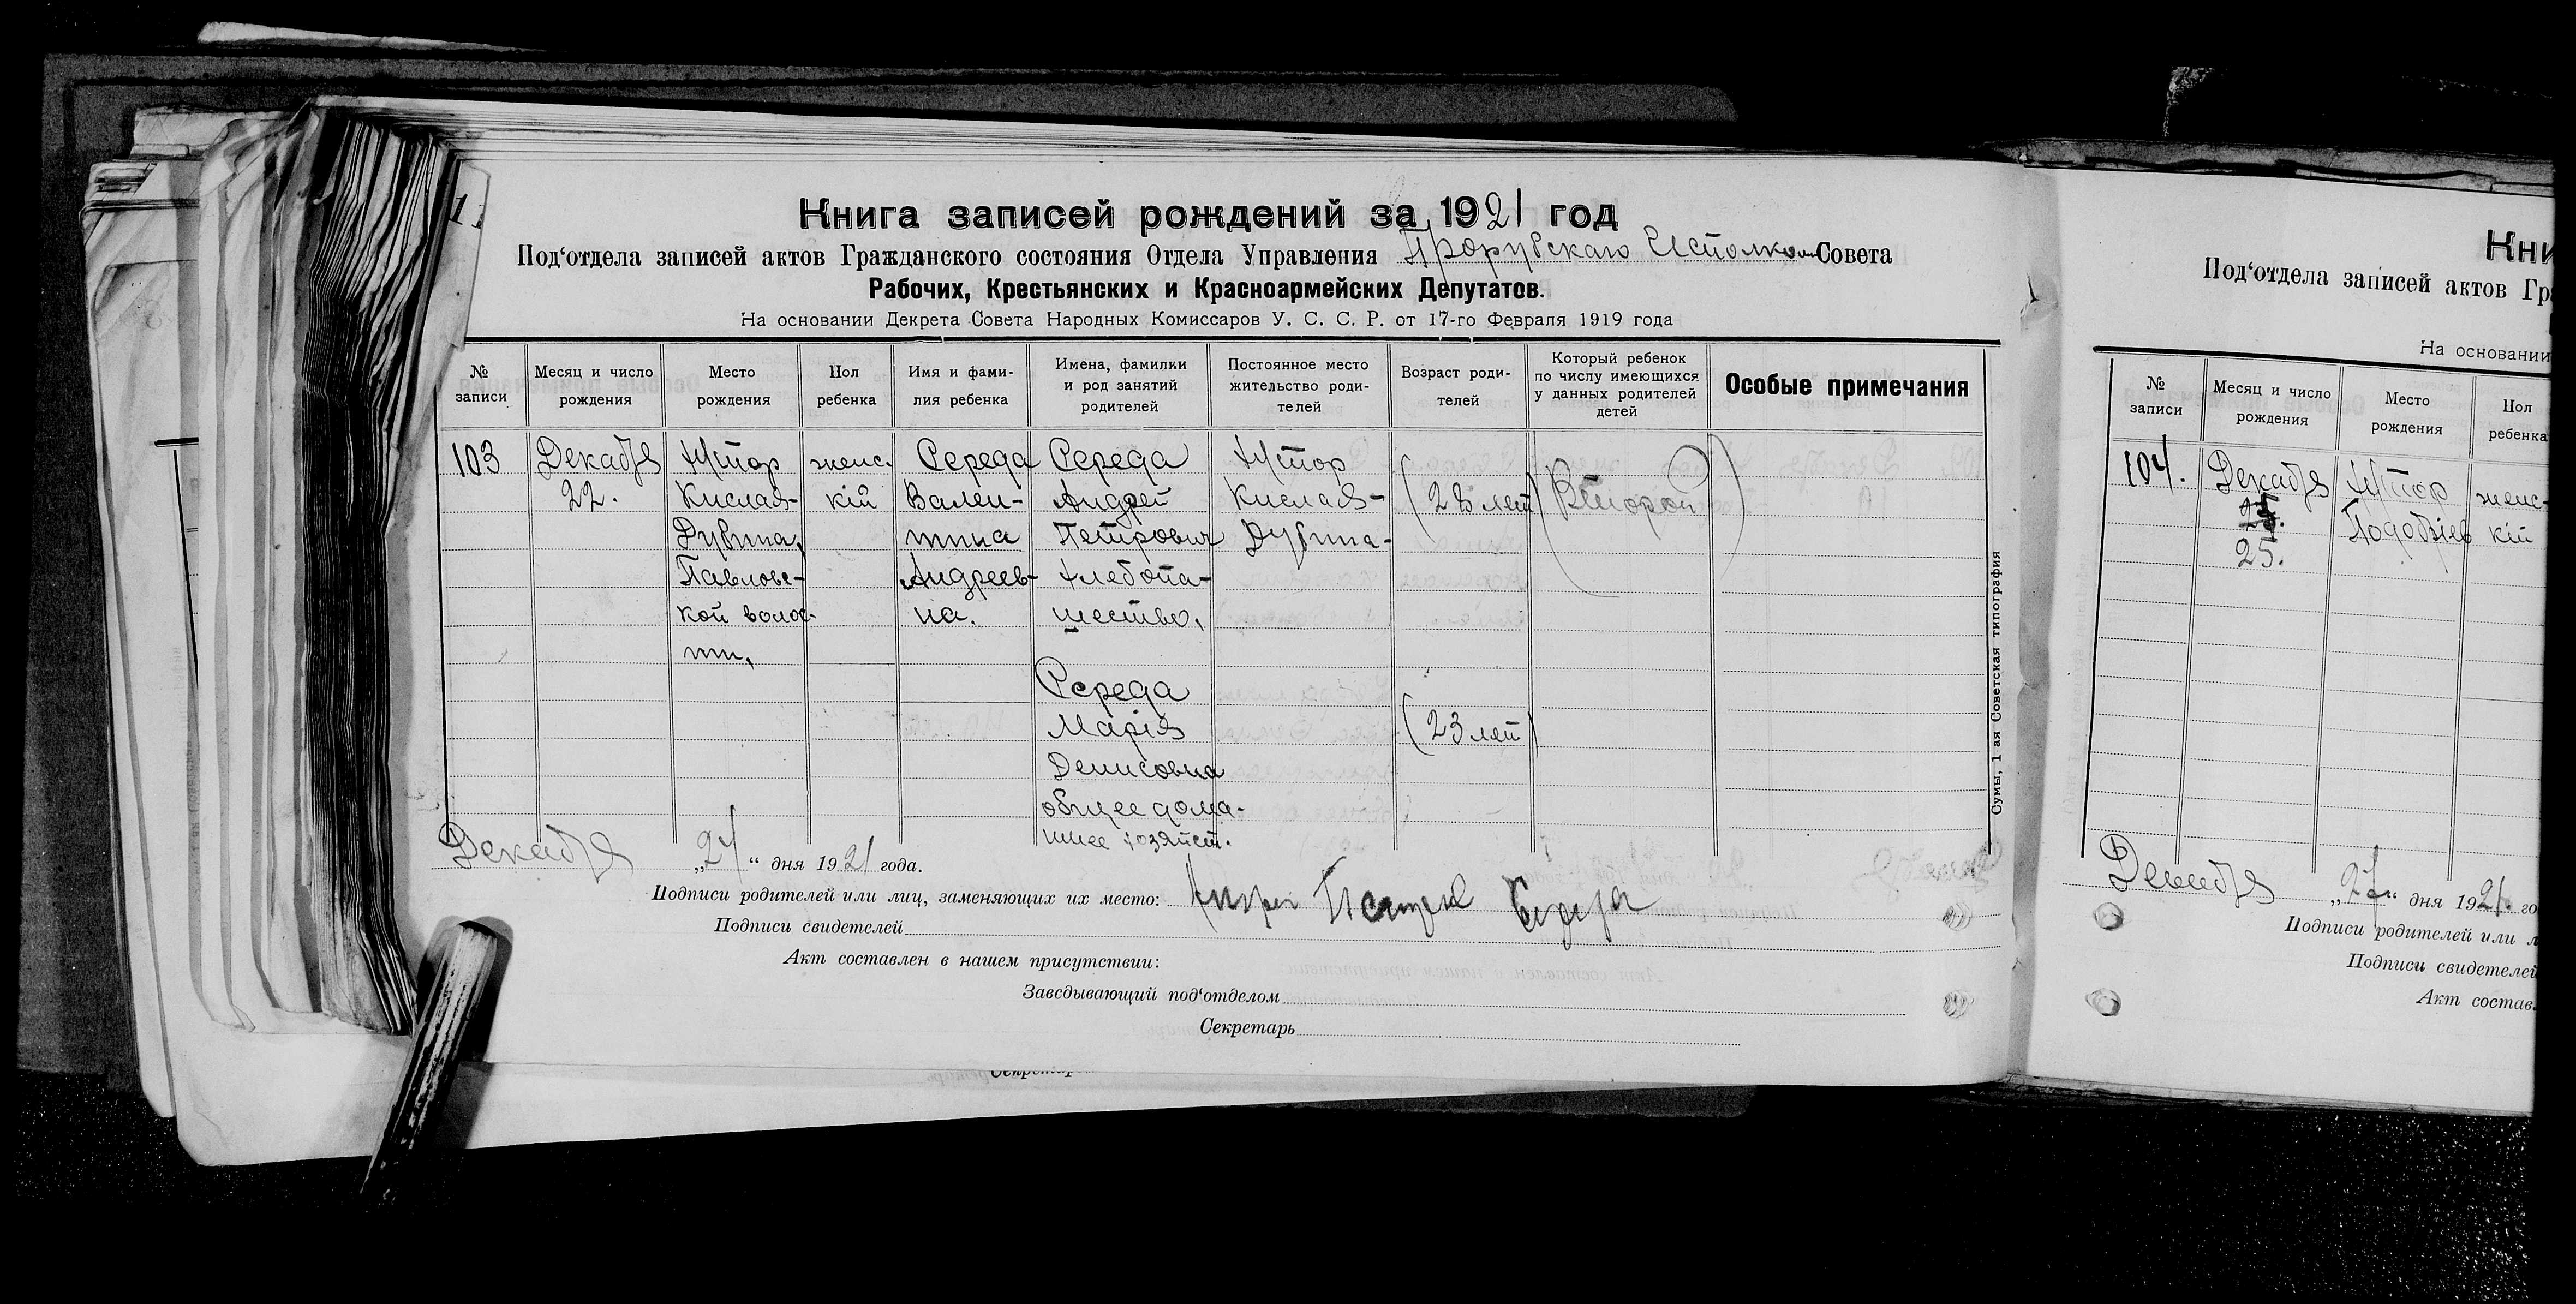 Книга записей рождений за 1921 год
Под‘отдела записей актов Гражданского состояния Отдела Управления Прорубскаго Исполком Совета
Рабочих, Крестьянских и Красноармейских Депутатов.
На основании Декрета Совета Народных Комиссаров У. С. С. Р. от 17-го Февраля 1919 года
№ записи
Месяц и число рождения
Место рождения
Пол ребенка
Имя и фами-
лия ребенка
Имена, фамилки
и род занятий
родителей
Постоянное место
жительство роди-
телей
Возраст роди-
телей
Который ребенок
по числу имеющихся
у данных родителей
детей
Особые примечания
103
Декабря
22.
Хутор
Кислая-
Дубина,
Павловс-
кой волос-
ти,
женс.
кій
Середа
Вален-
тина
Андреев-
на.
Середа
Андрей
Петрович
хлебопа-
шество,
Середа
Марія
Денисовна
общее дома-
шнее хозяйст.
Хутор
Кислая-
Дубина-
(28 лет)
(23 лет)
Второй
Декабря „27“ дня 1921 года.
Подписи родителей или лиц, заменяющих их место:
Подписи свидетелей
Акт составлен в нашем присутствии:
Заведывающий под‘отделом
Секретарь
Сумы, 1 ая Советская типография
Кни
Под‘отдела записей актов Гр
На основании
№ записи
Месяц и число
рождения
Место
рождения
Пол
ребенка
104.
Декабря
25.
Хутор
женс-
кій
Декабря „27“ дня 1921. го
Подписи родителей или л
Подписи свидетелей
Акт состав.